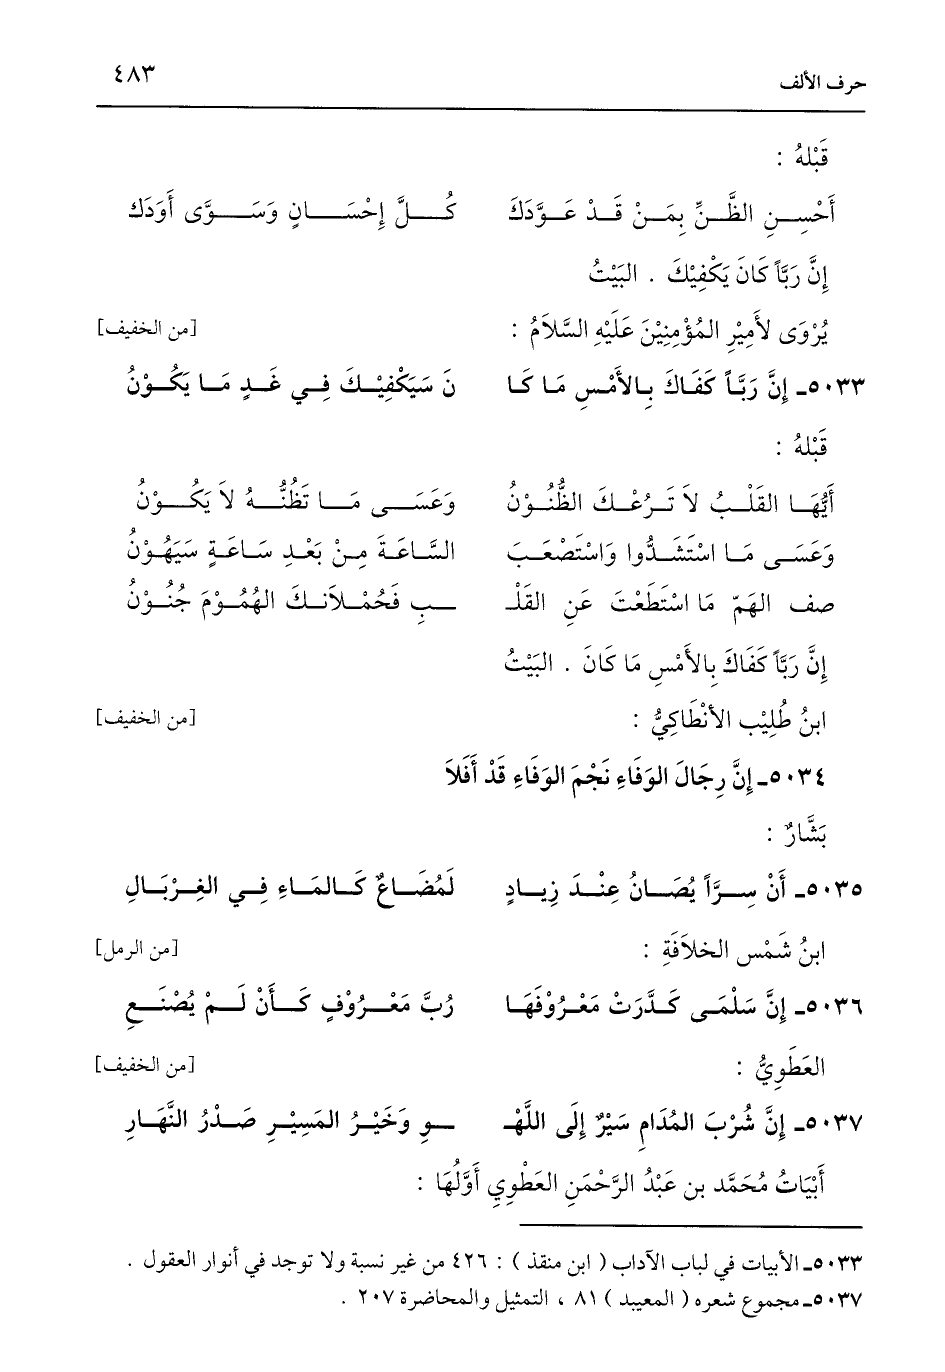 حرف الألف ٤٨٣
قَبْلهُ :
أَحْسِنِ الظَّنِّ بِمَنْ قَدْ عَوَّدَكَ كُلَّ إِحْسَانٍ وَسَوَّى أَوَدَكَ
إِنَّ رَبَّاً كَانَ يَكْفِيْكَ . البَيْتُ
يُرْوَى لأَمِيْرِ المُؤْمِنِيْنَ عَلَيْهِ السَّلاَمُ : [من الخفيف]
٥٠٣٣ـ إِنَّ رَبَّاً كَفَاكَ بِالأَمْسِ مَا كَا نَ سَيَكْفِيْكَ فِي غَدٍ مَا يَكُوْنُ
قَبْلهُ :
أَيُّهَا القَلْبُ لاَ تَرُعْكَ الظُّنُوْنُ وَعَسَى مَا تَظُنُّهُ لاَ يَكُوْنُ
وَعَسَى مَا اسْتَشَدُّوا وَاسْتَصْعَبَ السَّاعَةَ مِنْ بَعْدِ سَاعَةٍ سَيَهُوْنُ
صف الهَمّ مَا اسْتَطَعْتَ عَنِ القَلْـ ـبِ فَحُمْلاَنكَ الهُمُوْمَ جُنُوْنُ
إِنَّ رَبَّاً كَفَاكَ بِالأَمْسِ مَا كَانَ . البَيْتُ
ابنُ طُلِيْب الأَنْطَاكِيُّ : [من الخفيف]
٥٠٣٤ـ إِنَّ رِجَالَ الوَفَاءِ نَجْمَ الوَفَاءِ قَدْ أَفَلاَ
بَشَّارٌ :
٥٠٣٥ـ أَنْ سِرَّاً يُصَانُ عِنْدَ زِيادٍ لَمُضَاعٌ كَالمَاءِ فِي الغِرْبَالِ
ابنُ شَمْس الخلاَفَةِ : [من الرمل]
٥٠٣٦ـ إِنَّ سَلْمَى كَدَّرَتْ مَعْرُوْفَهَا رُبَّ مَعْرُوْفٍ كَأَنْ لَمْ يُصْنَعِ
العَطَوِيُّ : [من الخفيف]
٥٠٣٧ـ إِنَّ شُرْبَ المُدَامِ سَيْرٌ إِلَى اللَّهْـ ـوِ وَخَيْرُ المَسِيْرِ صَدْرُ النَّهَارِ
أَبْيَاتُ مُحَمَّد بن عَبْدُ الرَّحْمَنِ العَطْوِي أَوَّلُهَا :
٥٠٣٣ـ الأبيات في لباب الآداب ( ابن منقذ ) : ٤٢٦ من غير نسبة ولا توجد في أنوار العقول .
٥٠٣٧ـ مجموع شعره ( المعيبد ) ٨١ ، التمثيل والمحاضرة ٢٠٧ .